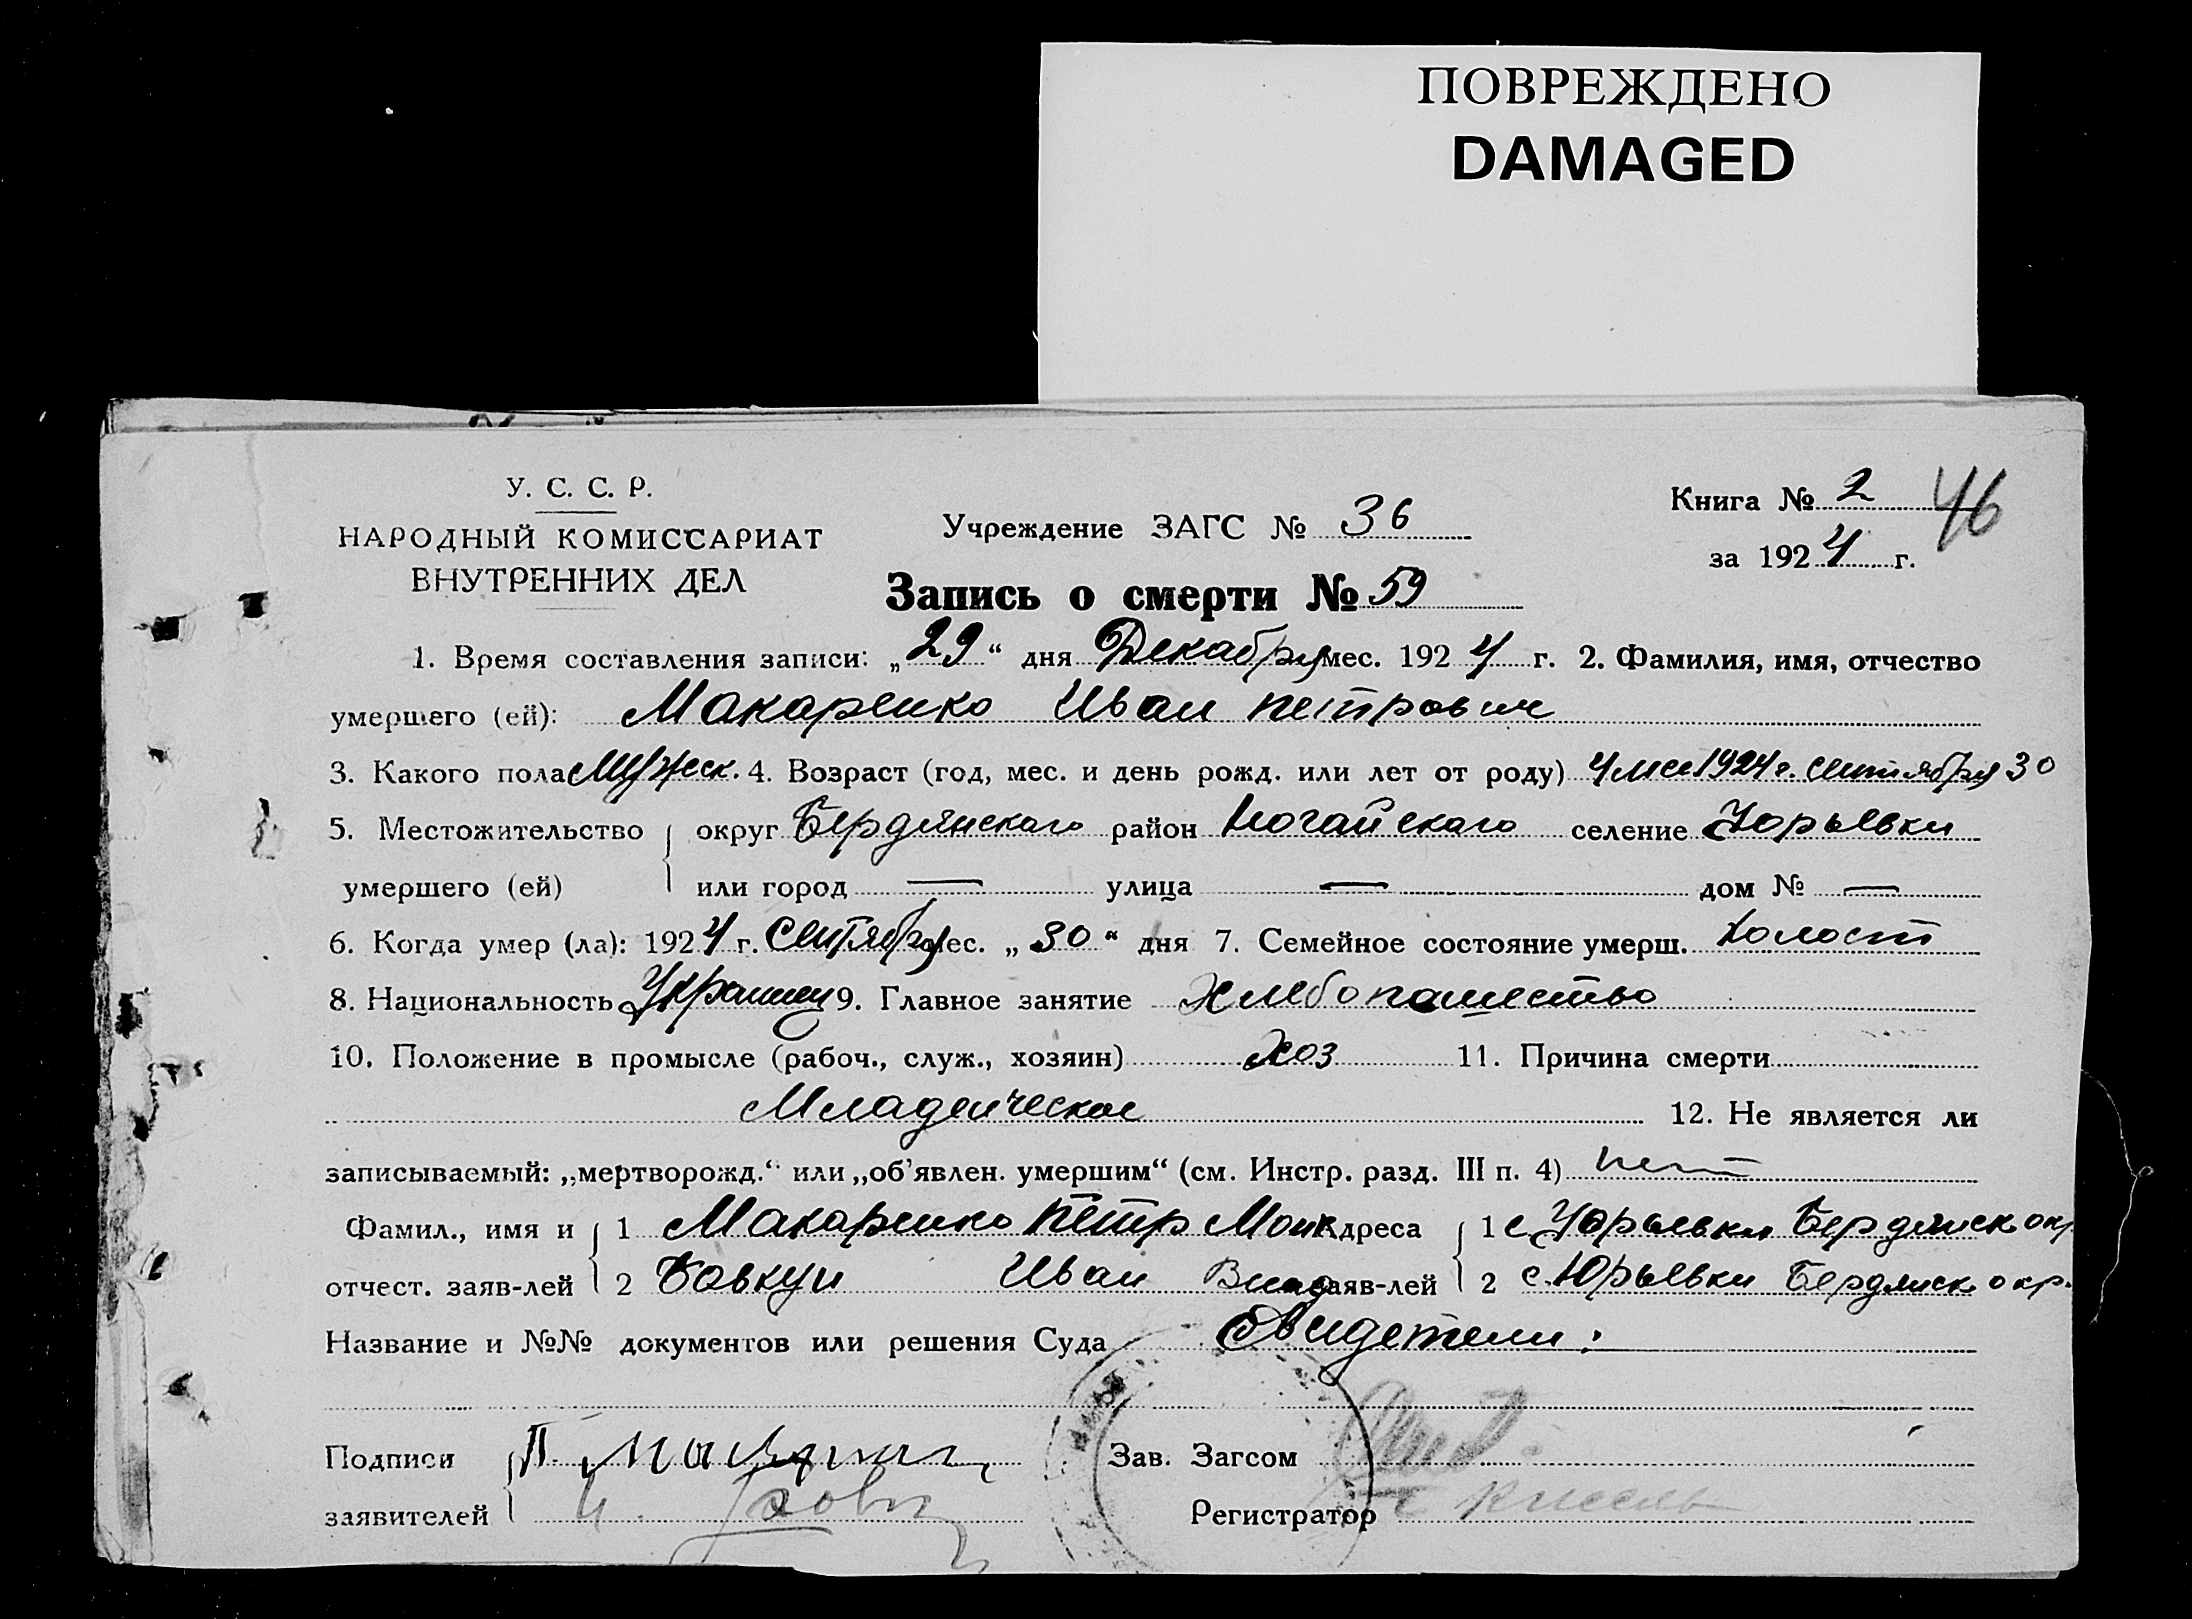 ПОВРЕЖДЕНО
DAMAGED
У. С. С. Р.
НАРОДНЫЙ КОМИССАРИАТ
ВНУТРЕННИХ ДЕЛ
Учреждение ЗАГС № 36
Книга № 2 46
за 1924 г.
Запись о смерти № 59
1. Время составления записи: „29“ дня Декабря мес. 1924 г. 2. Фамилия, имя, отчество
умершего (ей): Макаренко Иван Петрович
3. Какого пола Мужеск. 4. Возраст (год, мес. и день рожд. или лет от роду) 4 мес 1924 г. сентября 30
5. Местожительство округ Бердянского район Ногайского селение Юрьевки
умершего (ей) или город — улица — дом № —
6. Когда умер (ла): 1924 г. Сентября мес. „30“ дня 7. Семейное состояние умерш. Холост
8. Национальность Украинец 9. Главное занятие Хлебопашество
10. Положение в промысле (рабоч., служ., хозяин) Хоз 11. Причина смерти
Младенческое 12. Не является ли
записываемый: „мертворожд.“ или „об’явлен. умершим“ (см. Инстр. разд. III п. 4) нет
Фамил., имя и 1 Макаренко Петр Адреса 1 с Юрьевки Бердянск окр
отчест. заяв-лей 2 Бовкун Иван заяв-лей 2 с. Юрьевки Бердянск окр.
Название и №№ документов или решения Суда Свидетели:
Подписи П. Зав. Загсом
заявителей И. Бовкун Регистратор Кисель